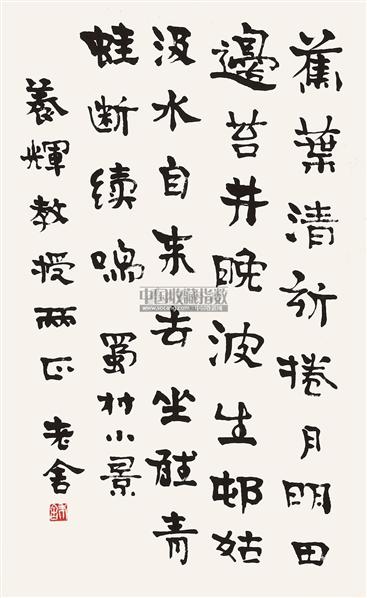 蕉葉清新捲月明田
邊苔井晚波生邨姑
汲水自来去坐聴青
蛙断续鳴 蜀村小景
養輝教授兩正 老舍
中国收藏指数